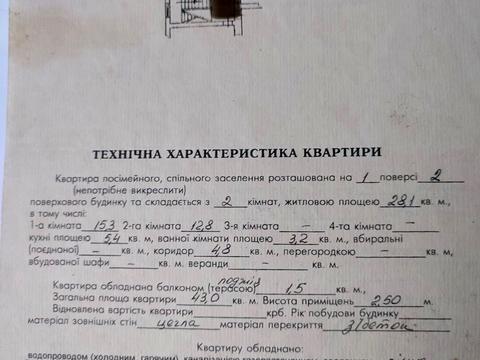 ТЕХНІЧНА ХАРАКТЕРИСТИКА КВАРТИРИ
Квартира посімейного, спільного заселення розташована на 1 поверсі 2
(непотрібне викреслити)
поверхового будинку та складається з 2 кімнат, житловою площею 28,1 кв. м.,
в тому числі:
1-а кімната 15,3 2-га кімната 12,8 3-я кімната – 4-та кімната –
кухні площею 5,4 кв. м, ванної кімнати площею 3,2 кв. м., вбиральні
(поєднаної) – кв. м, коридор 4,8 кв. м., перегородкою – кв. м.,
вбудованої шафи – кв. м. веранди – кв. м.
лоджія
Квартира обладнана балконом (терасою) 1,5 кв. м.,
Загальна площа квартири 43,0 кв. м. Висота приміщень 2,50 м.
Відновлена вартість квартири крб. Рік побудови будинку
матеріал зовнішніх стін цегла матеріал перекриття з/бетон
Квартиру обладнано:
водопроводом (холодним, гарячим), каналізацією